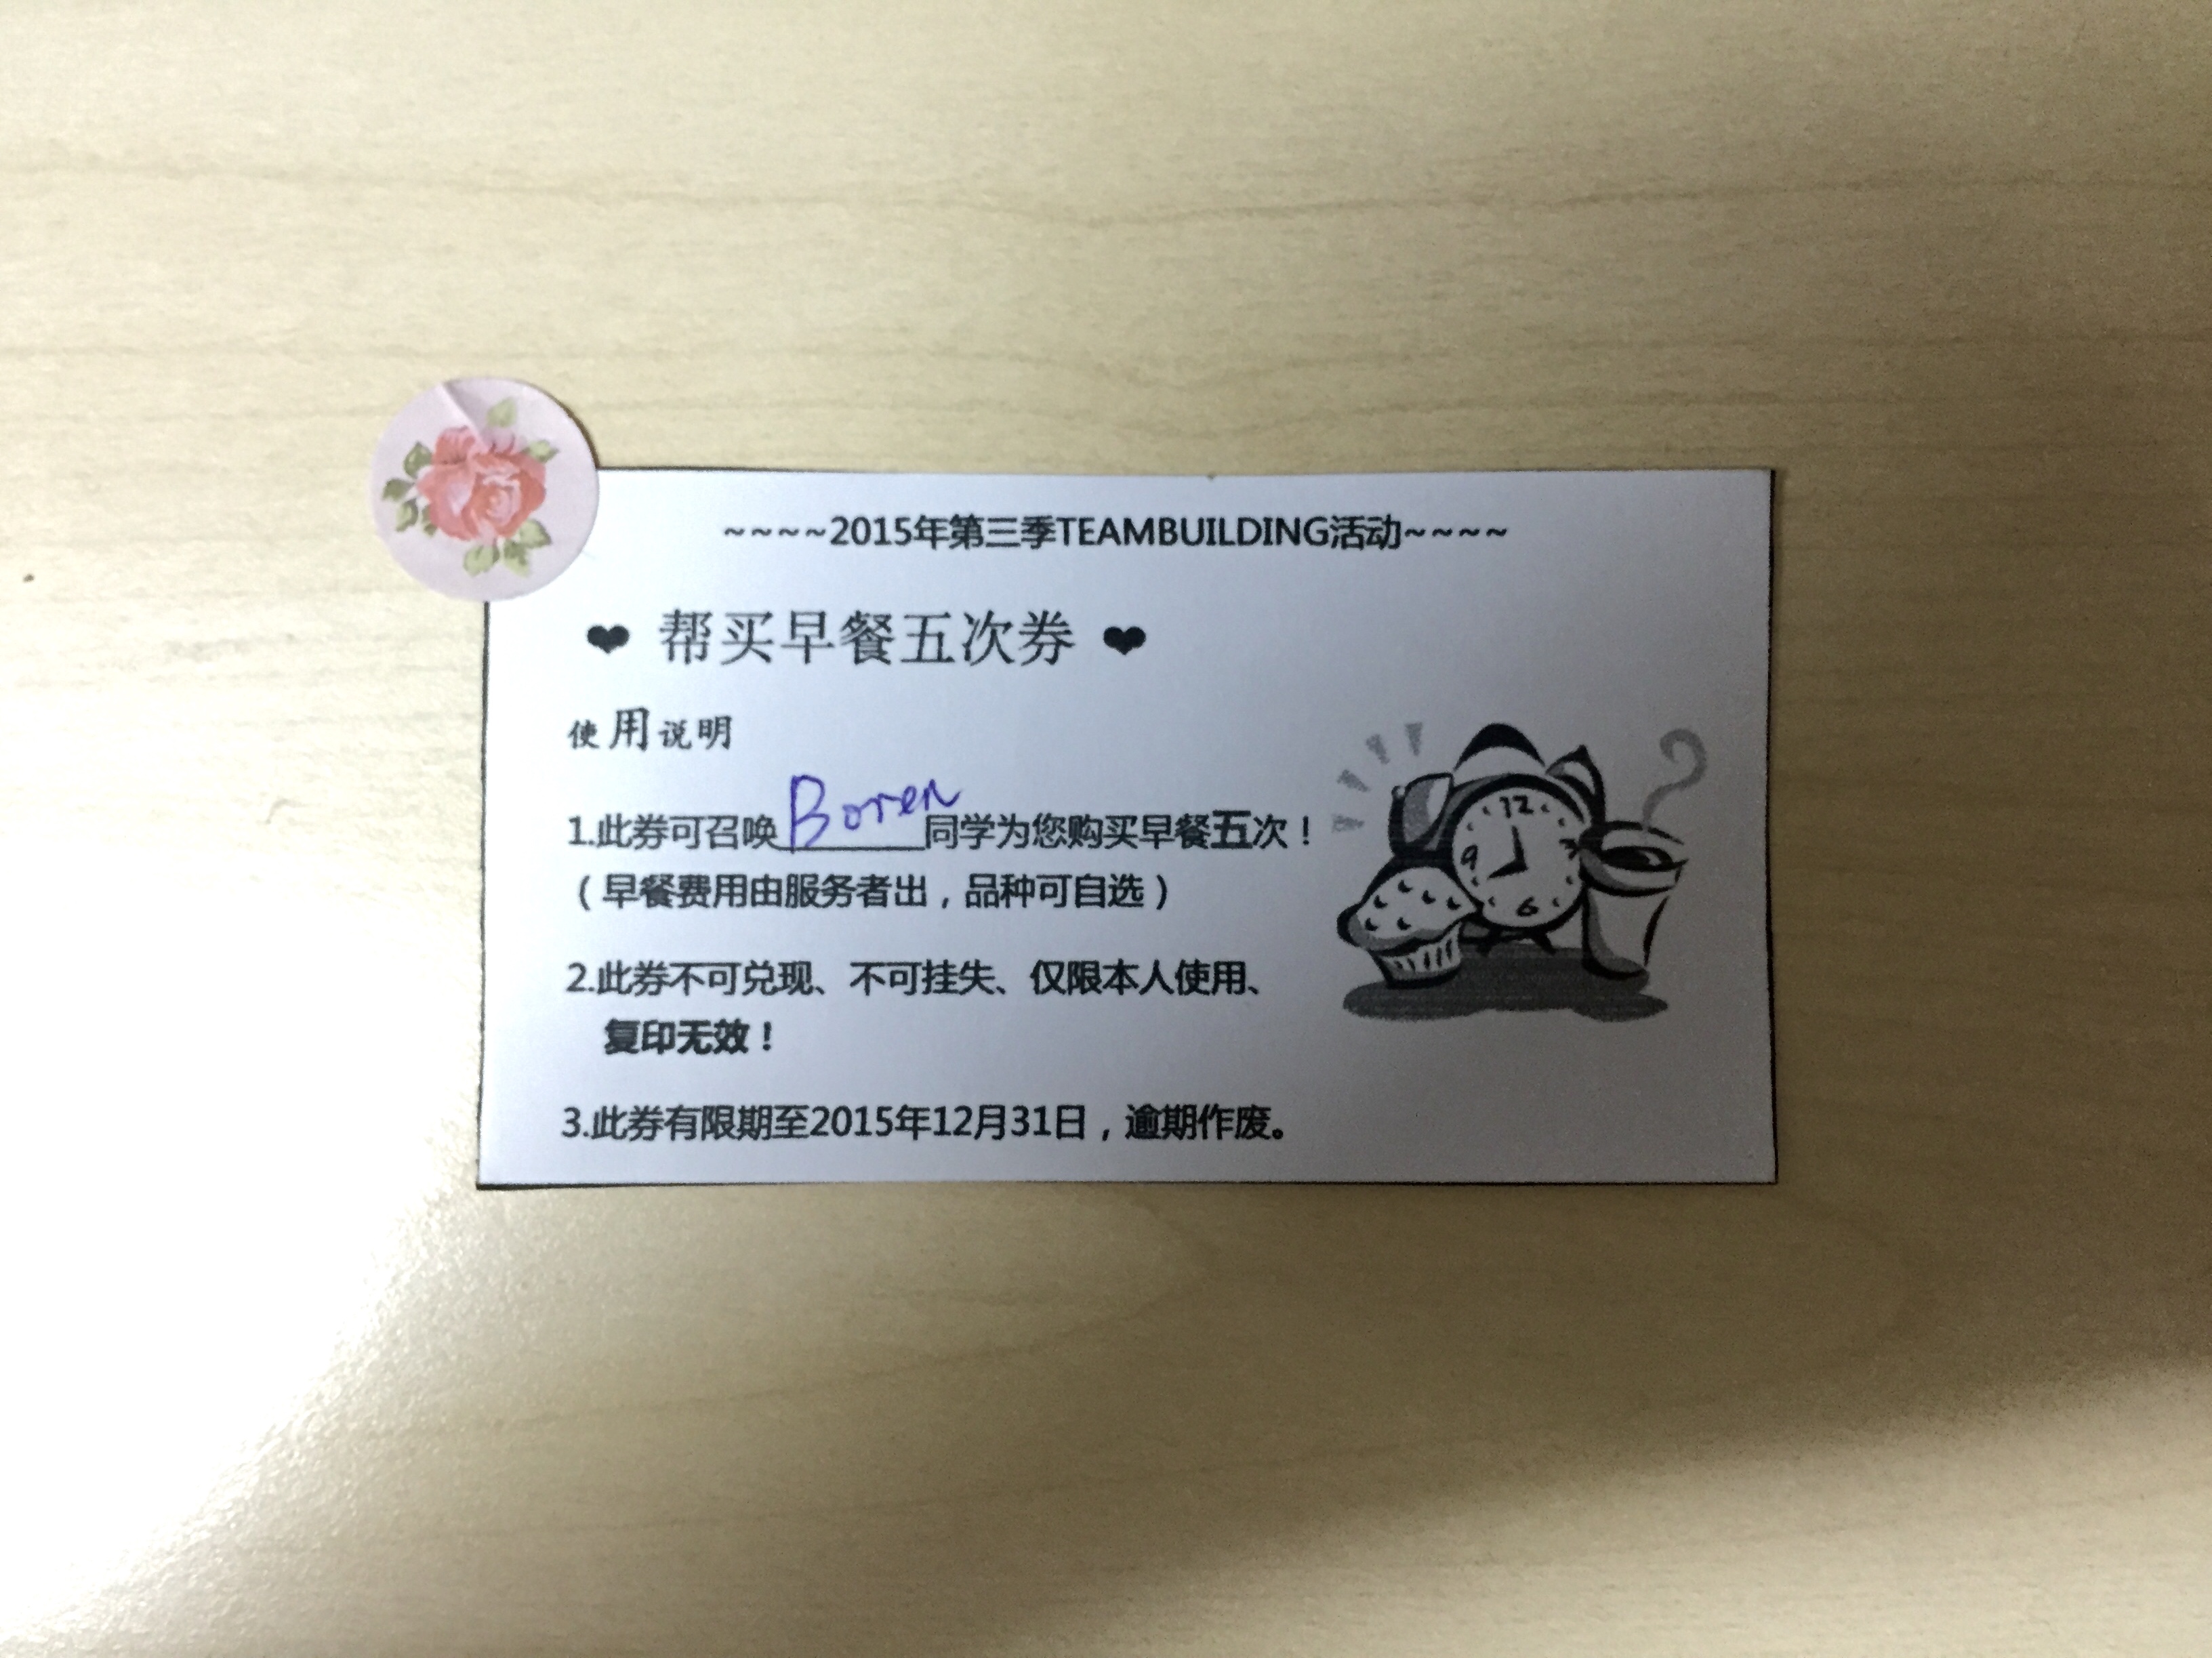 ~~~~2015年第三季TEAMBUILDING活动~~~~
❤ 帮买早餐五次券 ❤
使用说明
1.此券可召唤Boren同学为您购买早餐五次！
（早餐费用由服务者出，品种可自选）
2.此券不可兑现、不可挂失、仅限本人使用、
复印无效！
3.此券有限期至2015年12月31日，逾期作废。
12
9
6